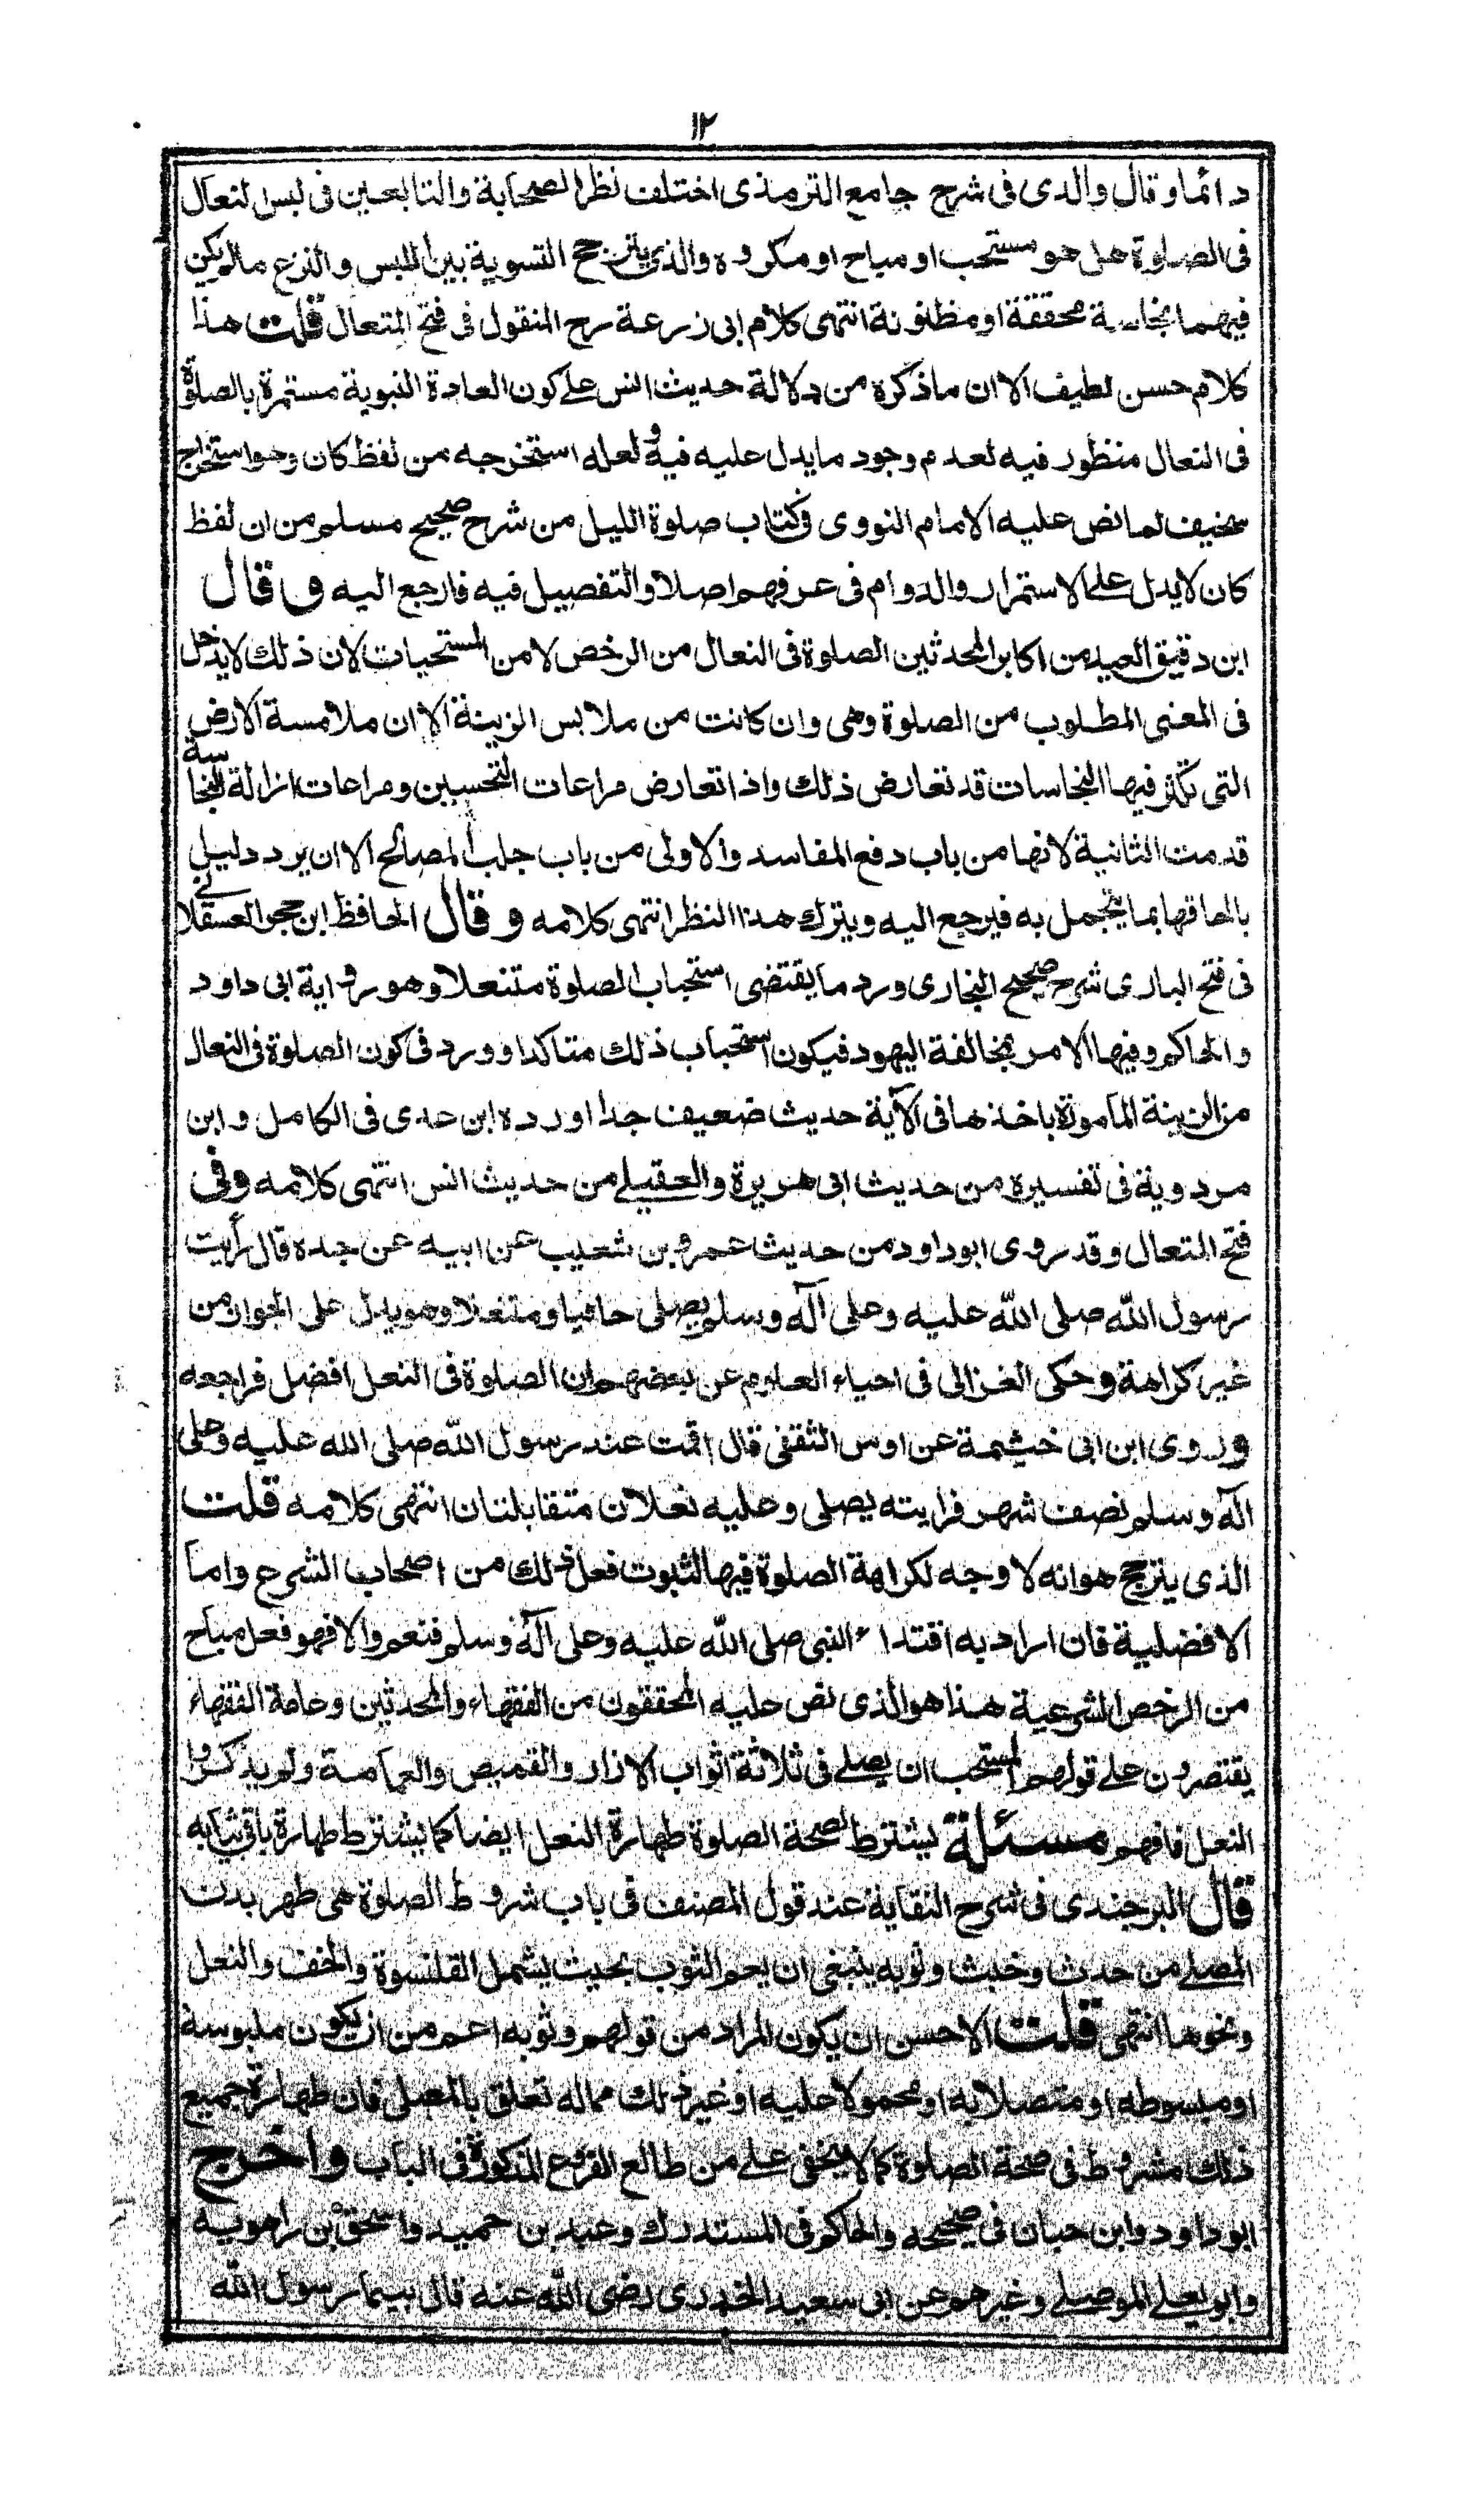 ١٢
دائما وقال والدى فى شرح جامع الترمذى اختلف نظر الصحابة والتابعين فى لبس لنعال
فى الصلوة هل هو مستحب او مباح او مكروه والذى يترجح التسوية بين اللبس والنزع مالم يكن
فيهما نجاسة محققة او مظنونة انتهى كلام ابى زرعة رح المنقول فى فتح المتعال قلت هذا
كلام حسن لطيف الا ان ماذكره من دلالة حديث انس على كون العادة النبوية مستمرة بالصلوة
فى النعال منظور فيه لعدم وجود مايدل عليه فيه ولعله استخرجه من لفظ كان وهو استخراج
سخيف لما نص عليه الامام النووى فى كتاب صلوة الليل من شرح صحيح مسلم من ان لفظ
كان لايدل على الاستمرار والدوام فى عرفهم اصلا والتفصيل فيه فارجع اليه وقال
ابن دقيق العيد من اكابر المحدثين الصلوة فى النعال من الرخص لا من المستحبات لان ذلك لايدخل
فى المعنى المطلوب من الصلوة وهى وان كانت من ملابس الزينة الا ان ملامسة الارض
التى تكثر فيها النجاسات قد تعارض ذلك واذا تعارض مراعات التحسين ومراعات ازالة النجاسة
قدمت الثانية لانها من باب دفع المفاسد والاولى من باب جلب المصالح الا ان يرد دليل
بالحاقها بما يتجمل به فيرجع اليه ويترك هذا النظر انتهى كلامه وقال الحافظ ابن حجر العسقلانے
فى فتح البارى شرح صحيح البخارى ورد ما يقتضى استحباب الصلوة متنعلا وهو رواية ابى داود
والحاكم وفيها الامر بمخالفة اليهود فيكون استحباب ذلك متاكدا وورد فى كون الصلوة فى النعال
من الزينة المامورة باخذها فى الآية حديث ضعيف جدا اورده ابن عدى فى الكامل وابن
مردوية فى تفسيره من حديث ابى هريرة والعقيلے من حديث انس انتهى كلامه وفى
فتح المتعال وقد روى ابو داود من حديث عمرو بن شعيب عن ابيه عن جده قال رأيت
رسول الله صلى الله عليه وعلى آله وسلم يصلى حافيا ومتنعلا وهو يدل على الجواز من
غير كراهة وحكى الغزالى فى احياء العلوم عن بعضهم ان الصلوة فى النعل افضل فراجعه
وروى ابن ابى خيثمة عن اوس الثقفى قال اقمت عند رسول الله صلى الله عليه وعلى
آله وسلم نصف شهر فرايته يصلى وعليه نعلان متقابلتان انتهى كلامه قلت
الذى يترجح هو انه لا وجه لكراهة الصلوة فيها لثبوت فعل ذلك من اصحاب الشرع واما
الافضلية فان اراد به اقتداء النبى صلى الله عليه وعلى آله وسلم فنعم والا فهو فعل مباح
من الرخص الشرعية هذا هو الذى نص عليه المحققون من الفقهاء والمحدثين وعامة الفقهاء
يقتصرون علے قولهم المستحب ان يصلے فى ثلاثة اثواب الازار والقميص والعمامة ولم يذكروا
النعل فافهم مسئلة يشترط لصحة الصلوة طهارة النعل ايضا كما يشترط طهارة باقى ثيابه
قال البرجندى فى شرح النقاية عند قول المصنف فى باب شروط الصلوة هى طهر بدن
المصلے من حدث وخبث وثوبه ينبغى ان يعم الثوب بحيث يشمل القلنسوة والخف والنعل
ونحوها انتهى قلت الاحسن ان يكون المراد من قولهم وثوبه اعم من ان يكون ملبوسة
او مبسوطه او متصلا به او محمولا عليه او غير ذلك مماله تعلق بالمصلى فان طهارة جميع
ذلك مشروط فى صحة الصلوة كما لا يخفى علے من طالع الفروع المذكورة فى الباب واخرج
ابو داود وابن حبان فى صحيحه والحاكم فى المستدرك وعبد بن حميد واسحق بن راهويه
وابو يعلے الموصلے وغيرهم عن ابى سعيد الخدرى رضى الله عنه قال بينما رسول الله